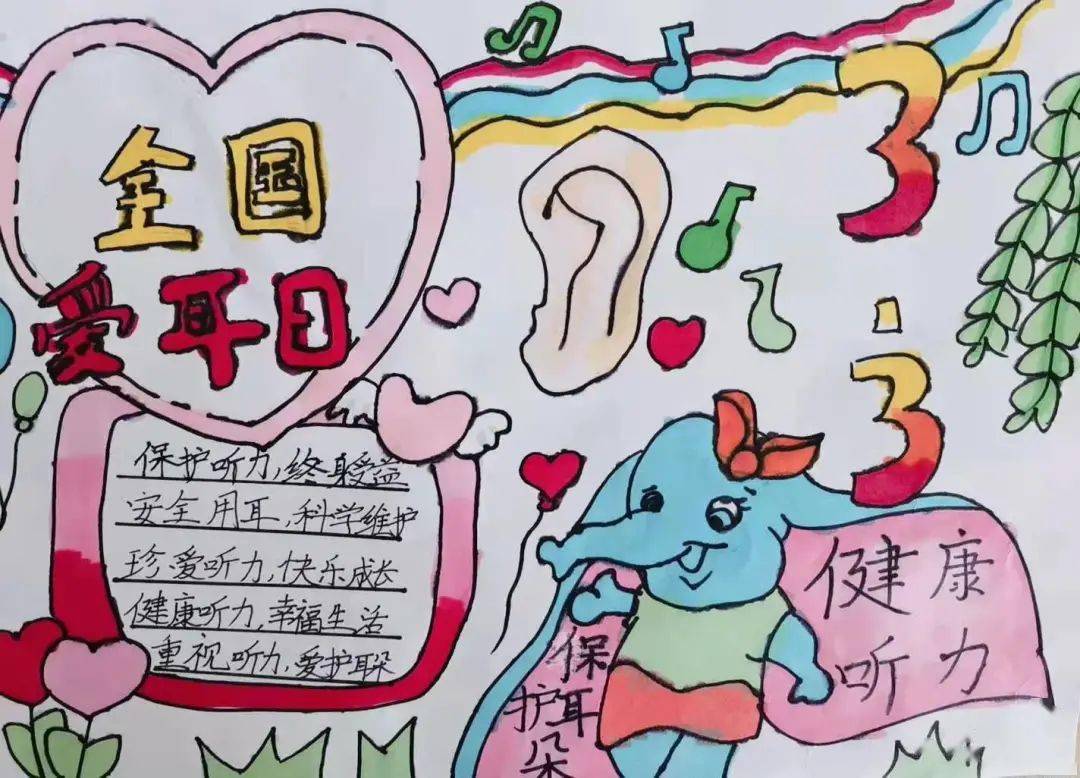 全国
爱耳日
保护听力,终身受益
安全用耳,科学维护
珍爱听力,快乐成长
健康听力,幸福生活
重视听力,爱护耳朵
3
.
3
保
护耳
朵
健康
听力